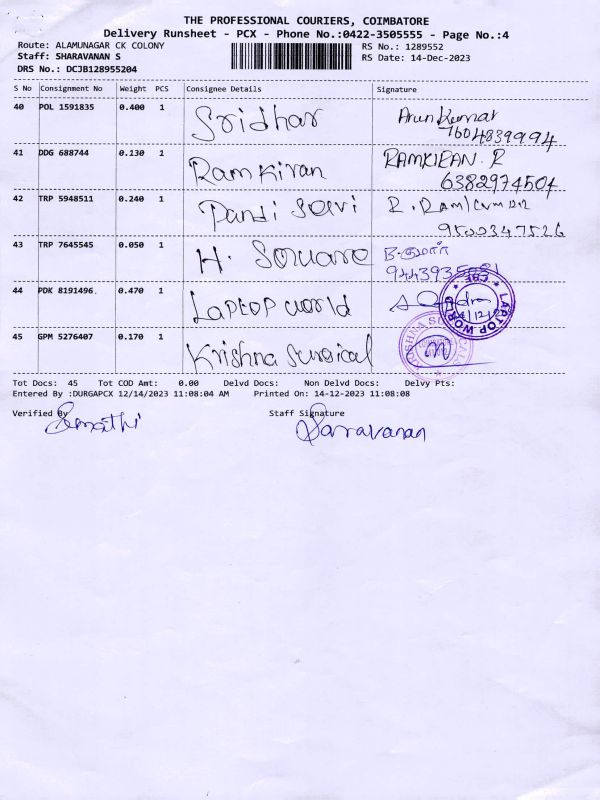 THE PROFESSIONAL COURIERS, COIMBATORE
Delivery Runsheet - PCX - Phone No.:0422-3505555 - Page No.:4
Route: ALAMUNAGAR CK COLONY
RS No.: 1289552
Staff: SHARAVANAN S
RS Date: 14-Dec-2023
DRS No.: DCJB128955204
S No Consignment No Weight PCS Consignee Details Signature
40 POL 1591835 0.400 1 Sridhar Arun Kumar
7604839994
41 DDG 688744 0.130 1 Ramkiran RAMKIRAN. R
6382974504
42 TRP 5948511 0.240 1 Pandi Selvi R. Ram
9500347526
43 TRP 7645545 0.050 1 H. Square B.குமார்
44 PDK 8191496. 0.470 1 Laptop world
LAPTOP WORLD CBE
45 GPM 5276407 0.170 1 Krishna Surgical
Tot Docs: 45 Tot COD Amt: 0.00 Delvd Docs: Non Delvd Docs: Delvy Pts:
Entered By :DURGAPCX 12/14/2023 11:08:04 AM Printed On: 14-12-2023 11:08:08
Verified By Staff Signature
Sumathi Saravanan